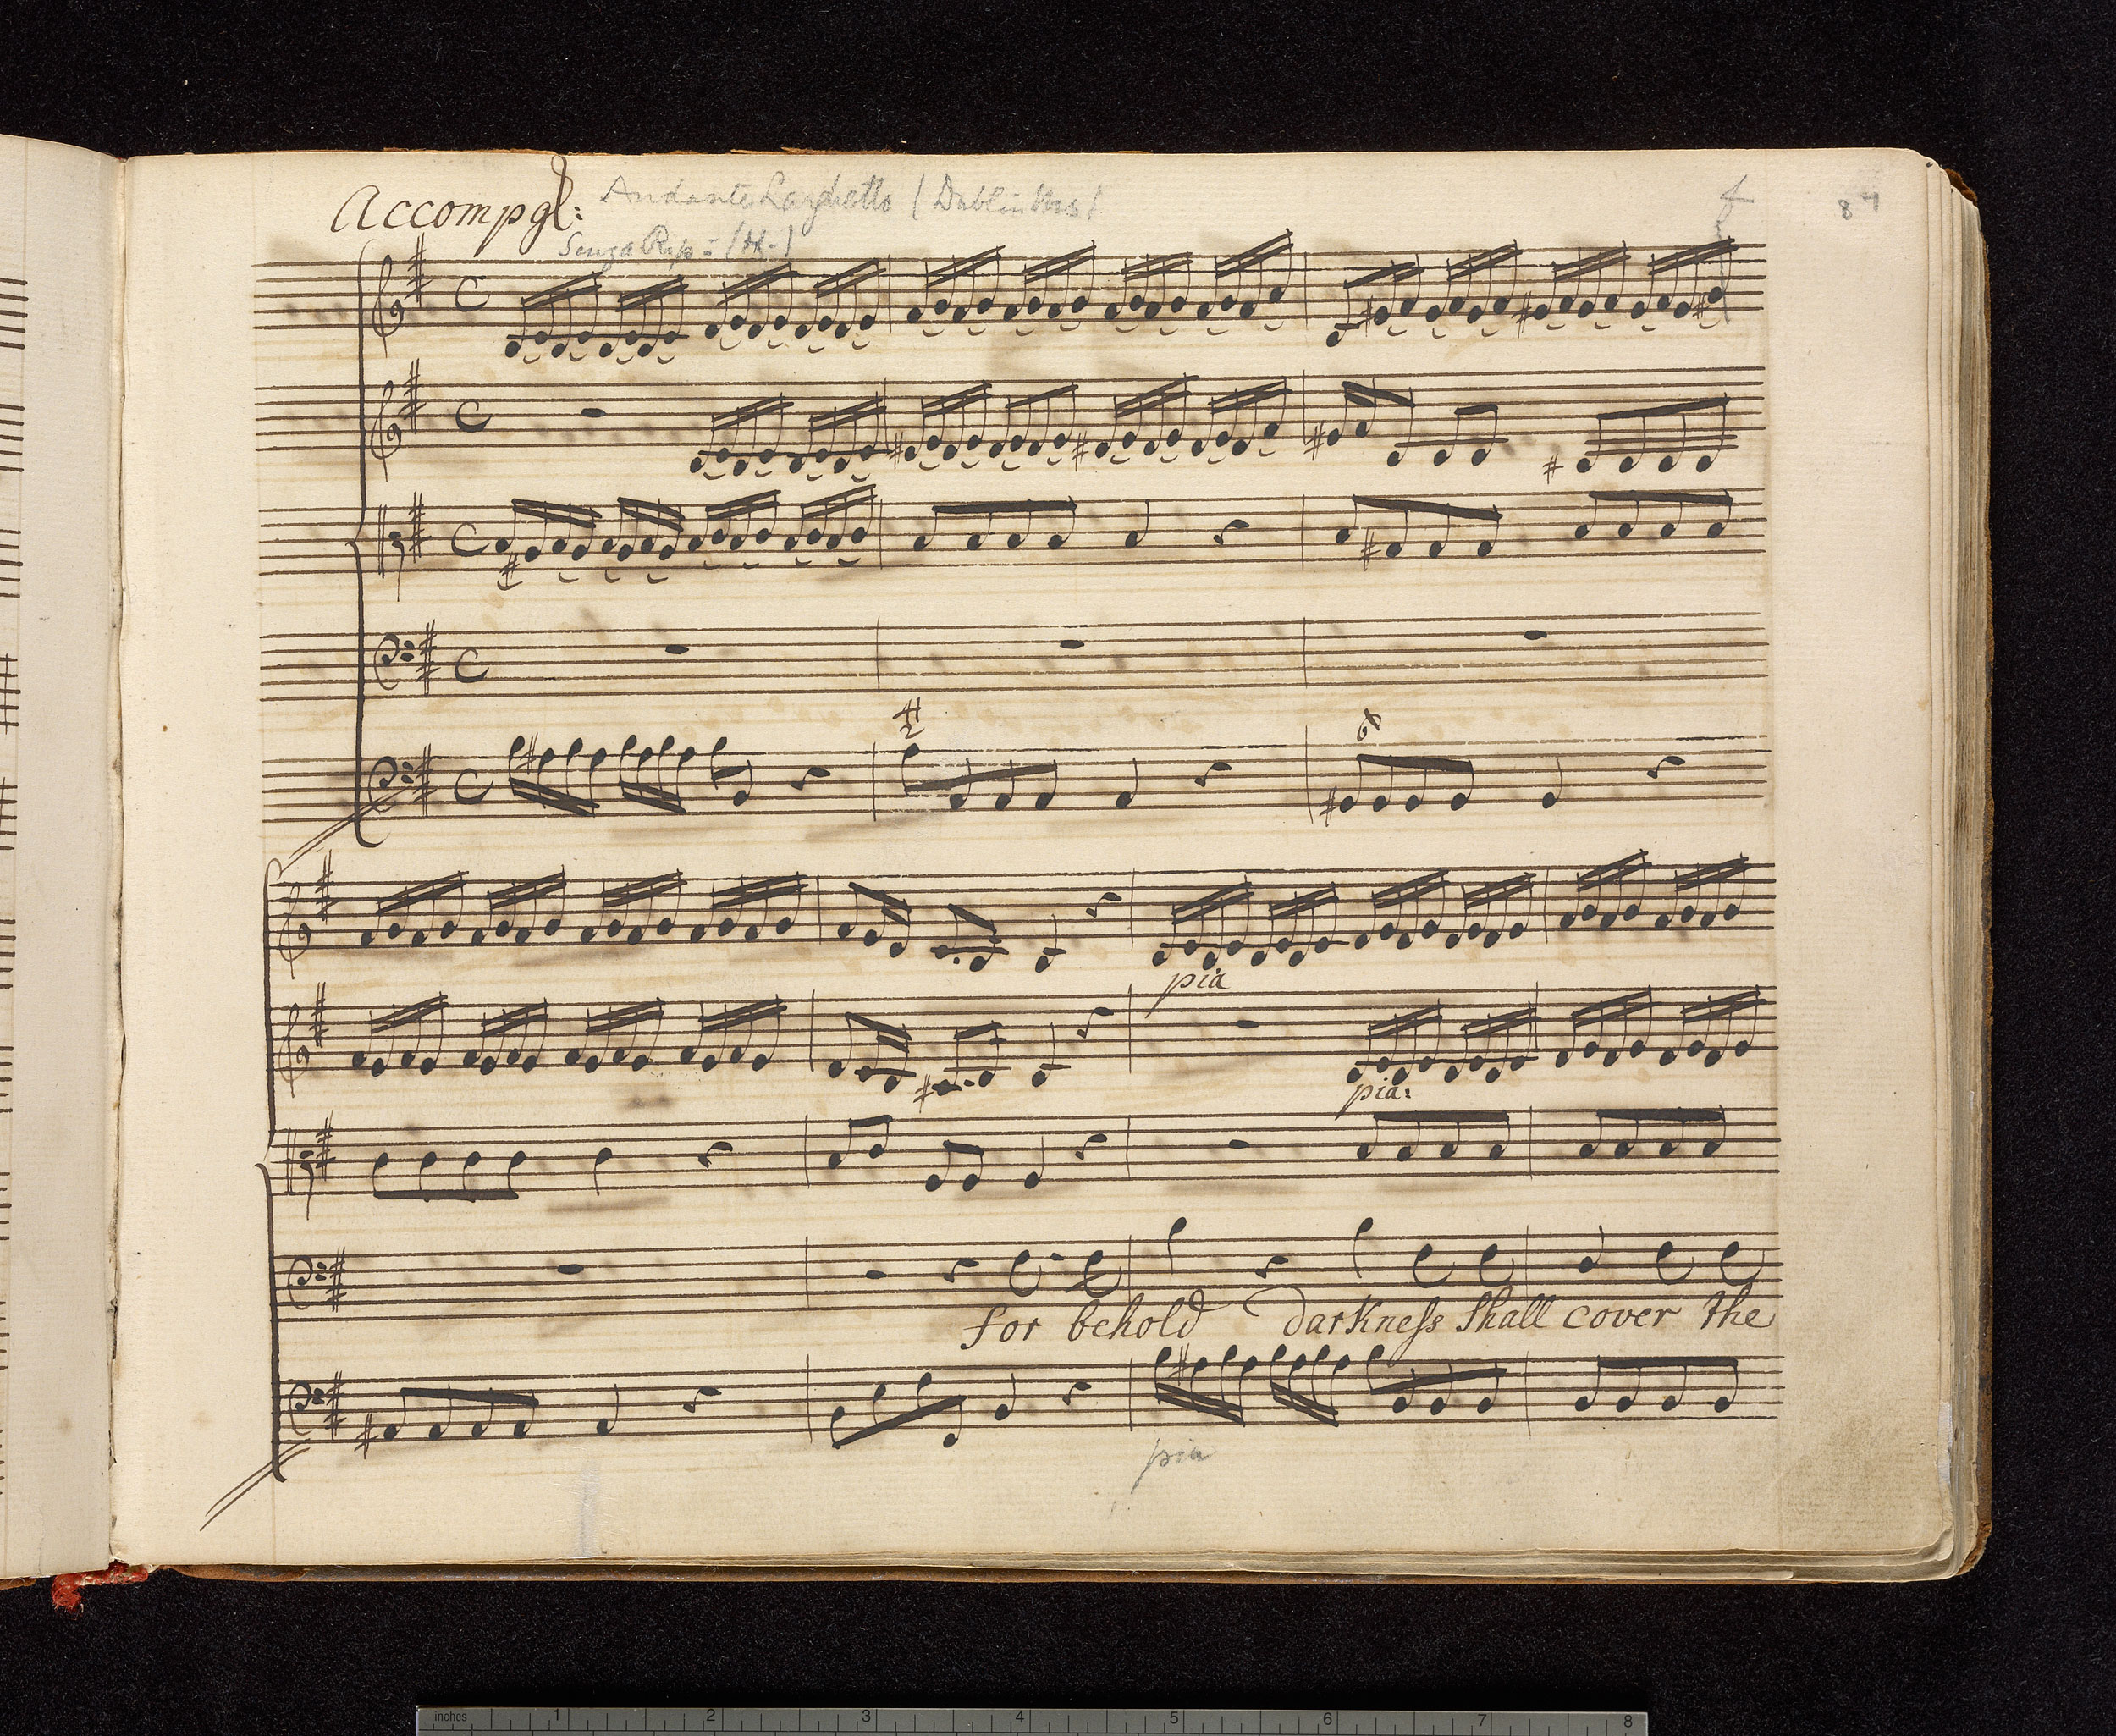 Accompgd: Andante Larghetto (Dublin Ms)
Senza Rip: (H.)
f
84
pia
pia:
for behold darkneſs shall cover the
pia
inches 1 2 3 4 5 6 7 8